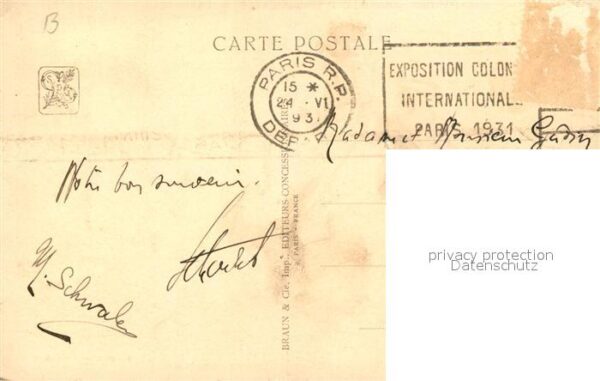 B
CARTE POSTALE
PARIS R.P.
15 *
24 · VI
93
DEP
EXPOSITION COLON
INTERNATIONAL
PARIS 1931
Madame et Monsieur
Notre bon souvenir.
BRAUN & Cie, Impr., EDITEURS-CONCESS
PARIS - FRANCE
privacy protection
Datenschutz